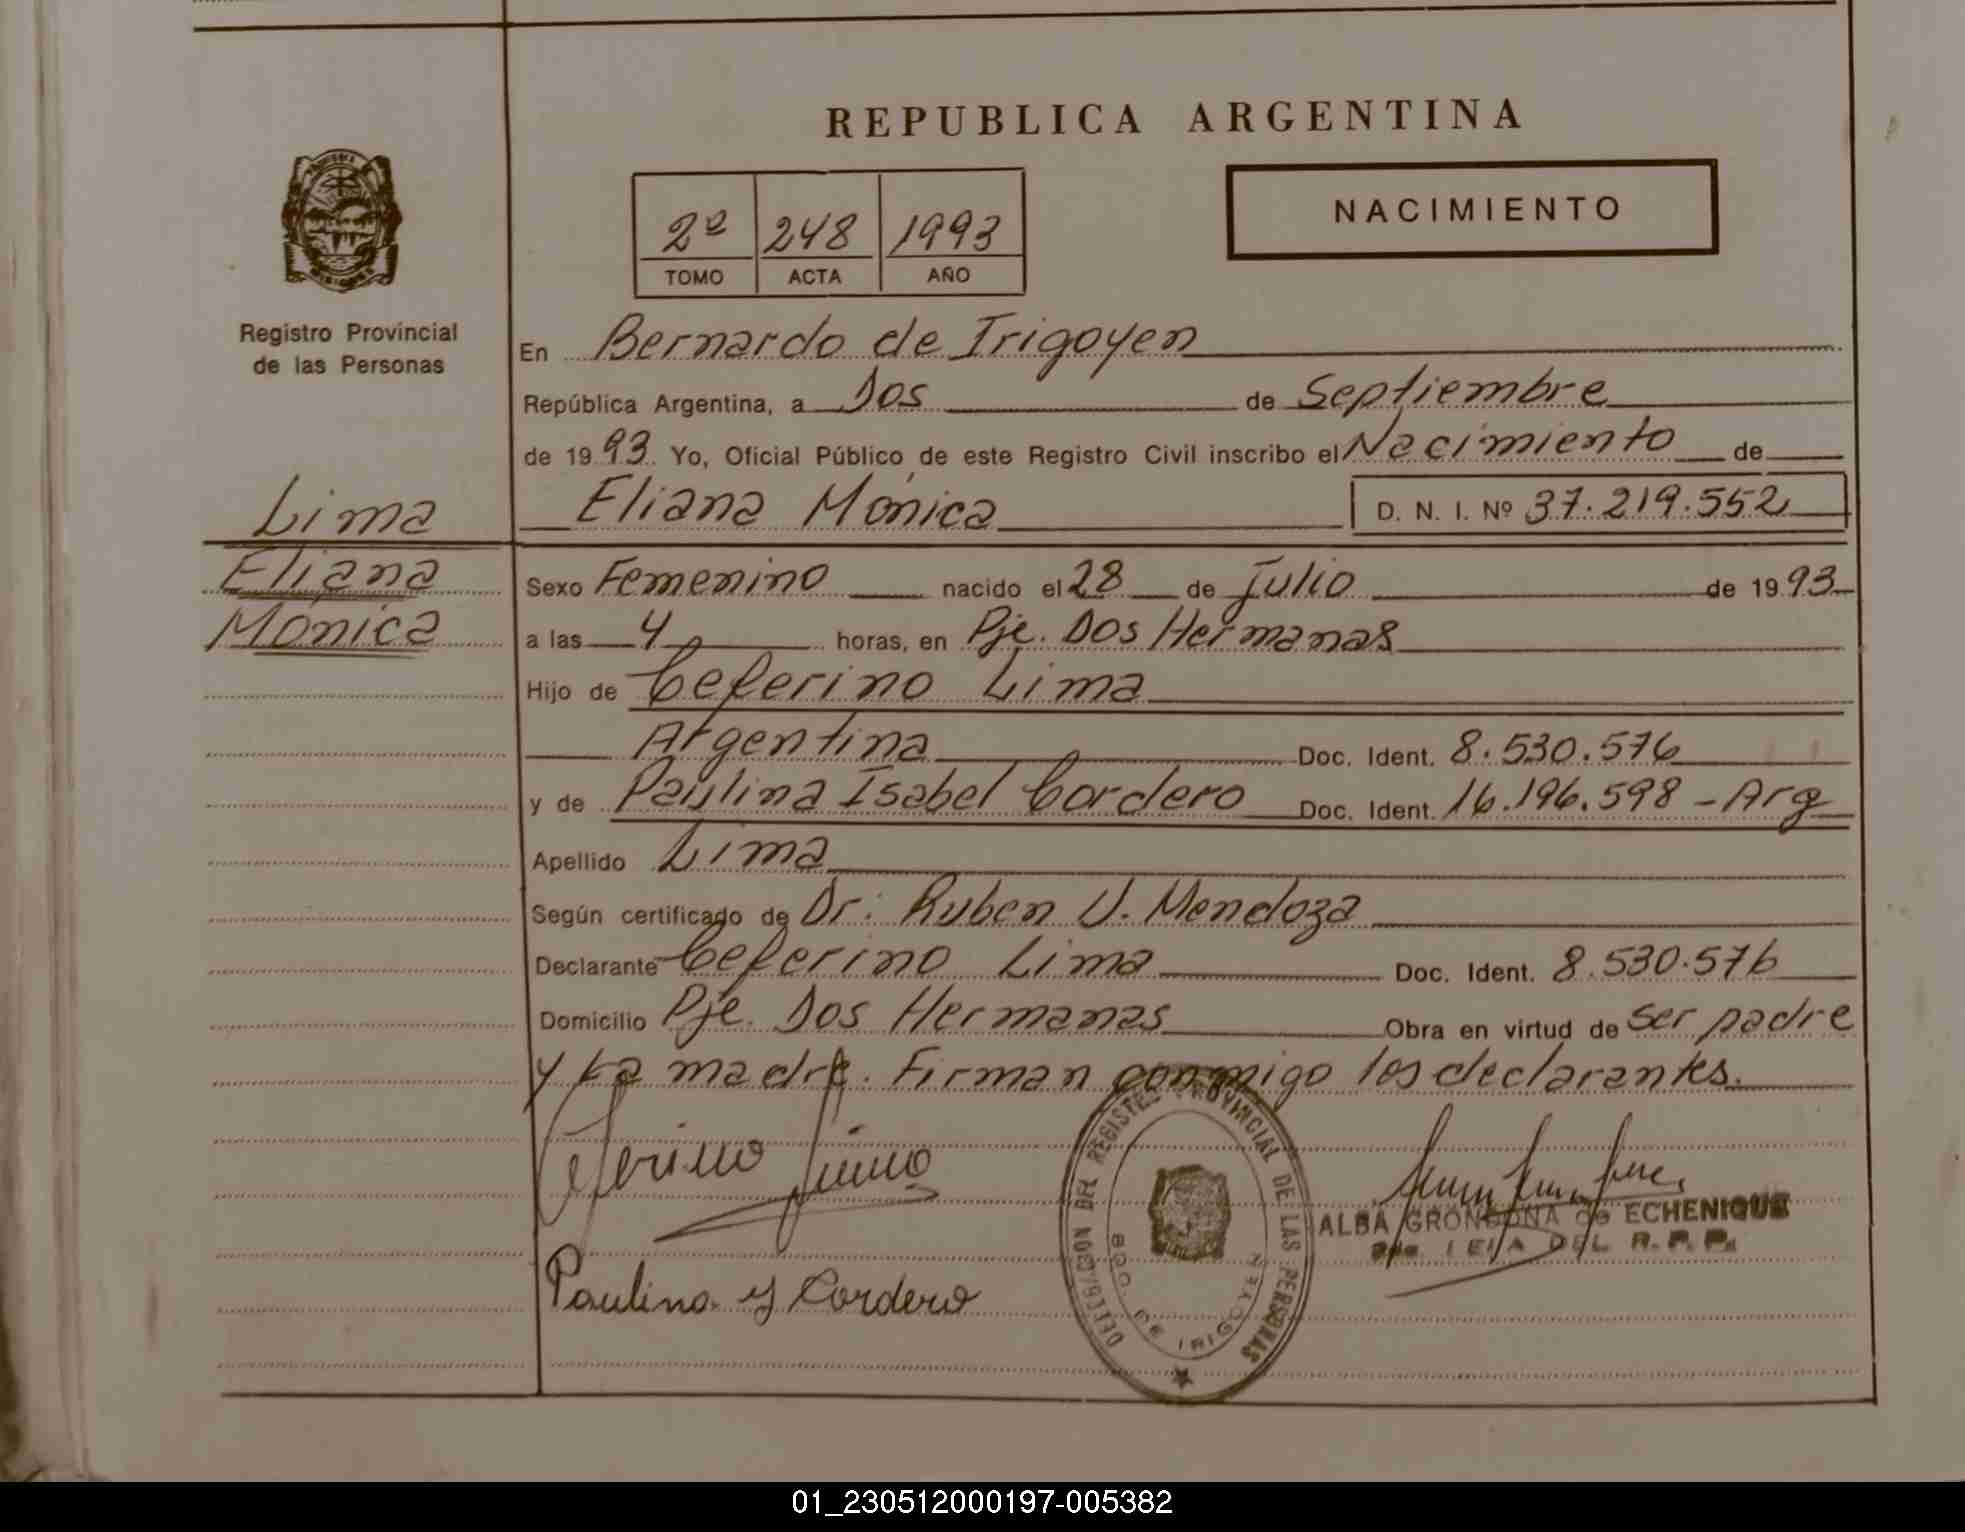 REPUBLICA ARGENTINA
2º 248 1993
TOMO ACTA AÑO
NACIMIENTO
Registro Provincial
de las Personas
Lima
Eliana
Mónica
En Bernardo de Irigoyen
República Argentina, a Dos de Septiembre
de 1993 Yo, Oficial Público de este Registro Civil inscribo el Nacimiento de
Eliana Mónica D. N. I. Nº 37.219.552
Sexo Femenino nacido el 28 de Julio de 1993
a las 4 horas, en Pje. Dos Hermanas
Hijo de Ceferino Lima
Argentina Doc. Ident. 8.530.576
y de Paulina Isabel Cordero Doc. Ident. 16.196.598 - Arg
Apellido Lima
Según certificado de Dr: Ruben U. Mendoza
Declarante Ceferino Lima Doc. Ident. 8.530.576
Domicilio Pje. Dos Hermanas Obra en virtud de ser padre
y La madre. Firman conmigo los declarantes.
Ceferino Lima
Paulina y Cordero
DELEGACION DEL REGISTRO PROVINCIAL DE LAS PERSONAS
BDO. DE IRIGOYEN
ALBA GRONDONA de ECHENIQUE
DEL R. P. P.
01_230512000197-005382